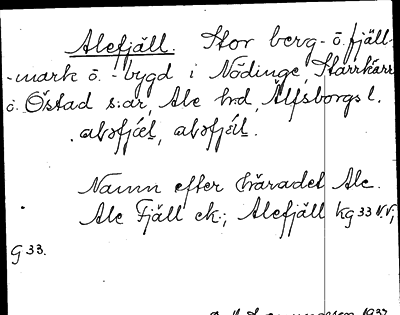 Alefjäll. Stor berg- ö. fjäll-
-mark ö. -bygd i Nödinge, Starrkärr
ö. Östad s:ar, Ale hd, Älfsborgs l.
Namn efter häradet Ale.
Ale Fjäll ek.; Alefjäll kg 33 N.V;
G 33.
1937